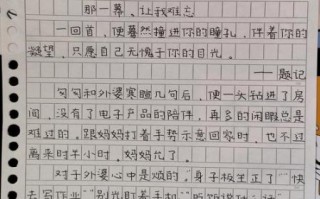 那一幕，让我难忘
一回首，便蓦然撞进你的瞳孔，伴着你的
凝望，只愿自己无愧于你的目光。
——题记
匆匆和外婆寒暄几句后，便一头钻进了房
间，没有了电子产品的陪伴，再多的闲暇总是
难过的。跟妈妈打着手势示意回家时，也不过
离来时半小时，妈妈允了。
对于外婆心中是烦的，“身子板坐正了”“快
去写作业”“别光盯着手机”